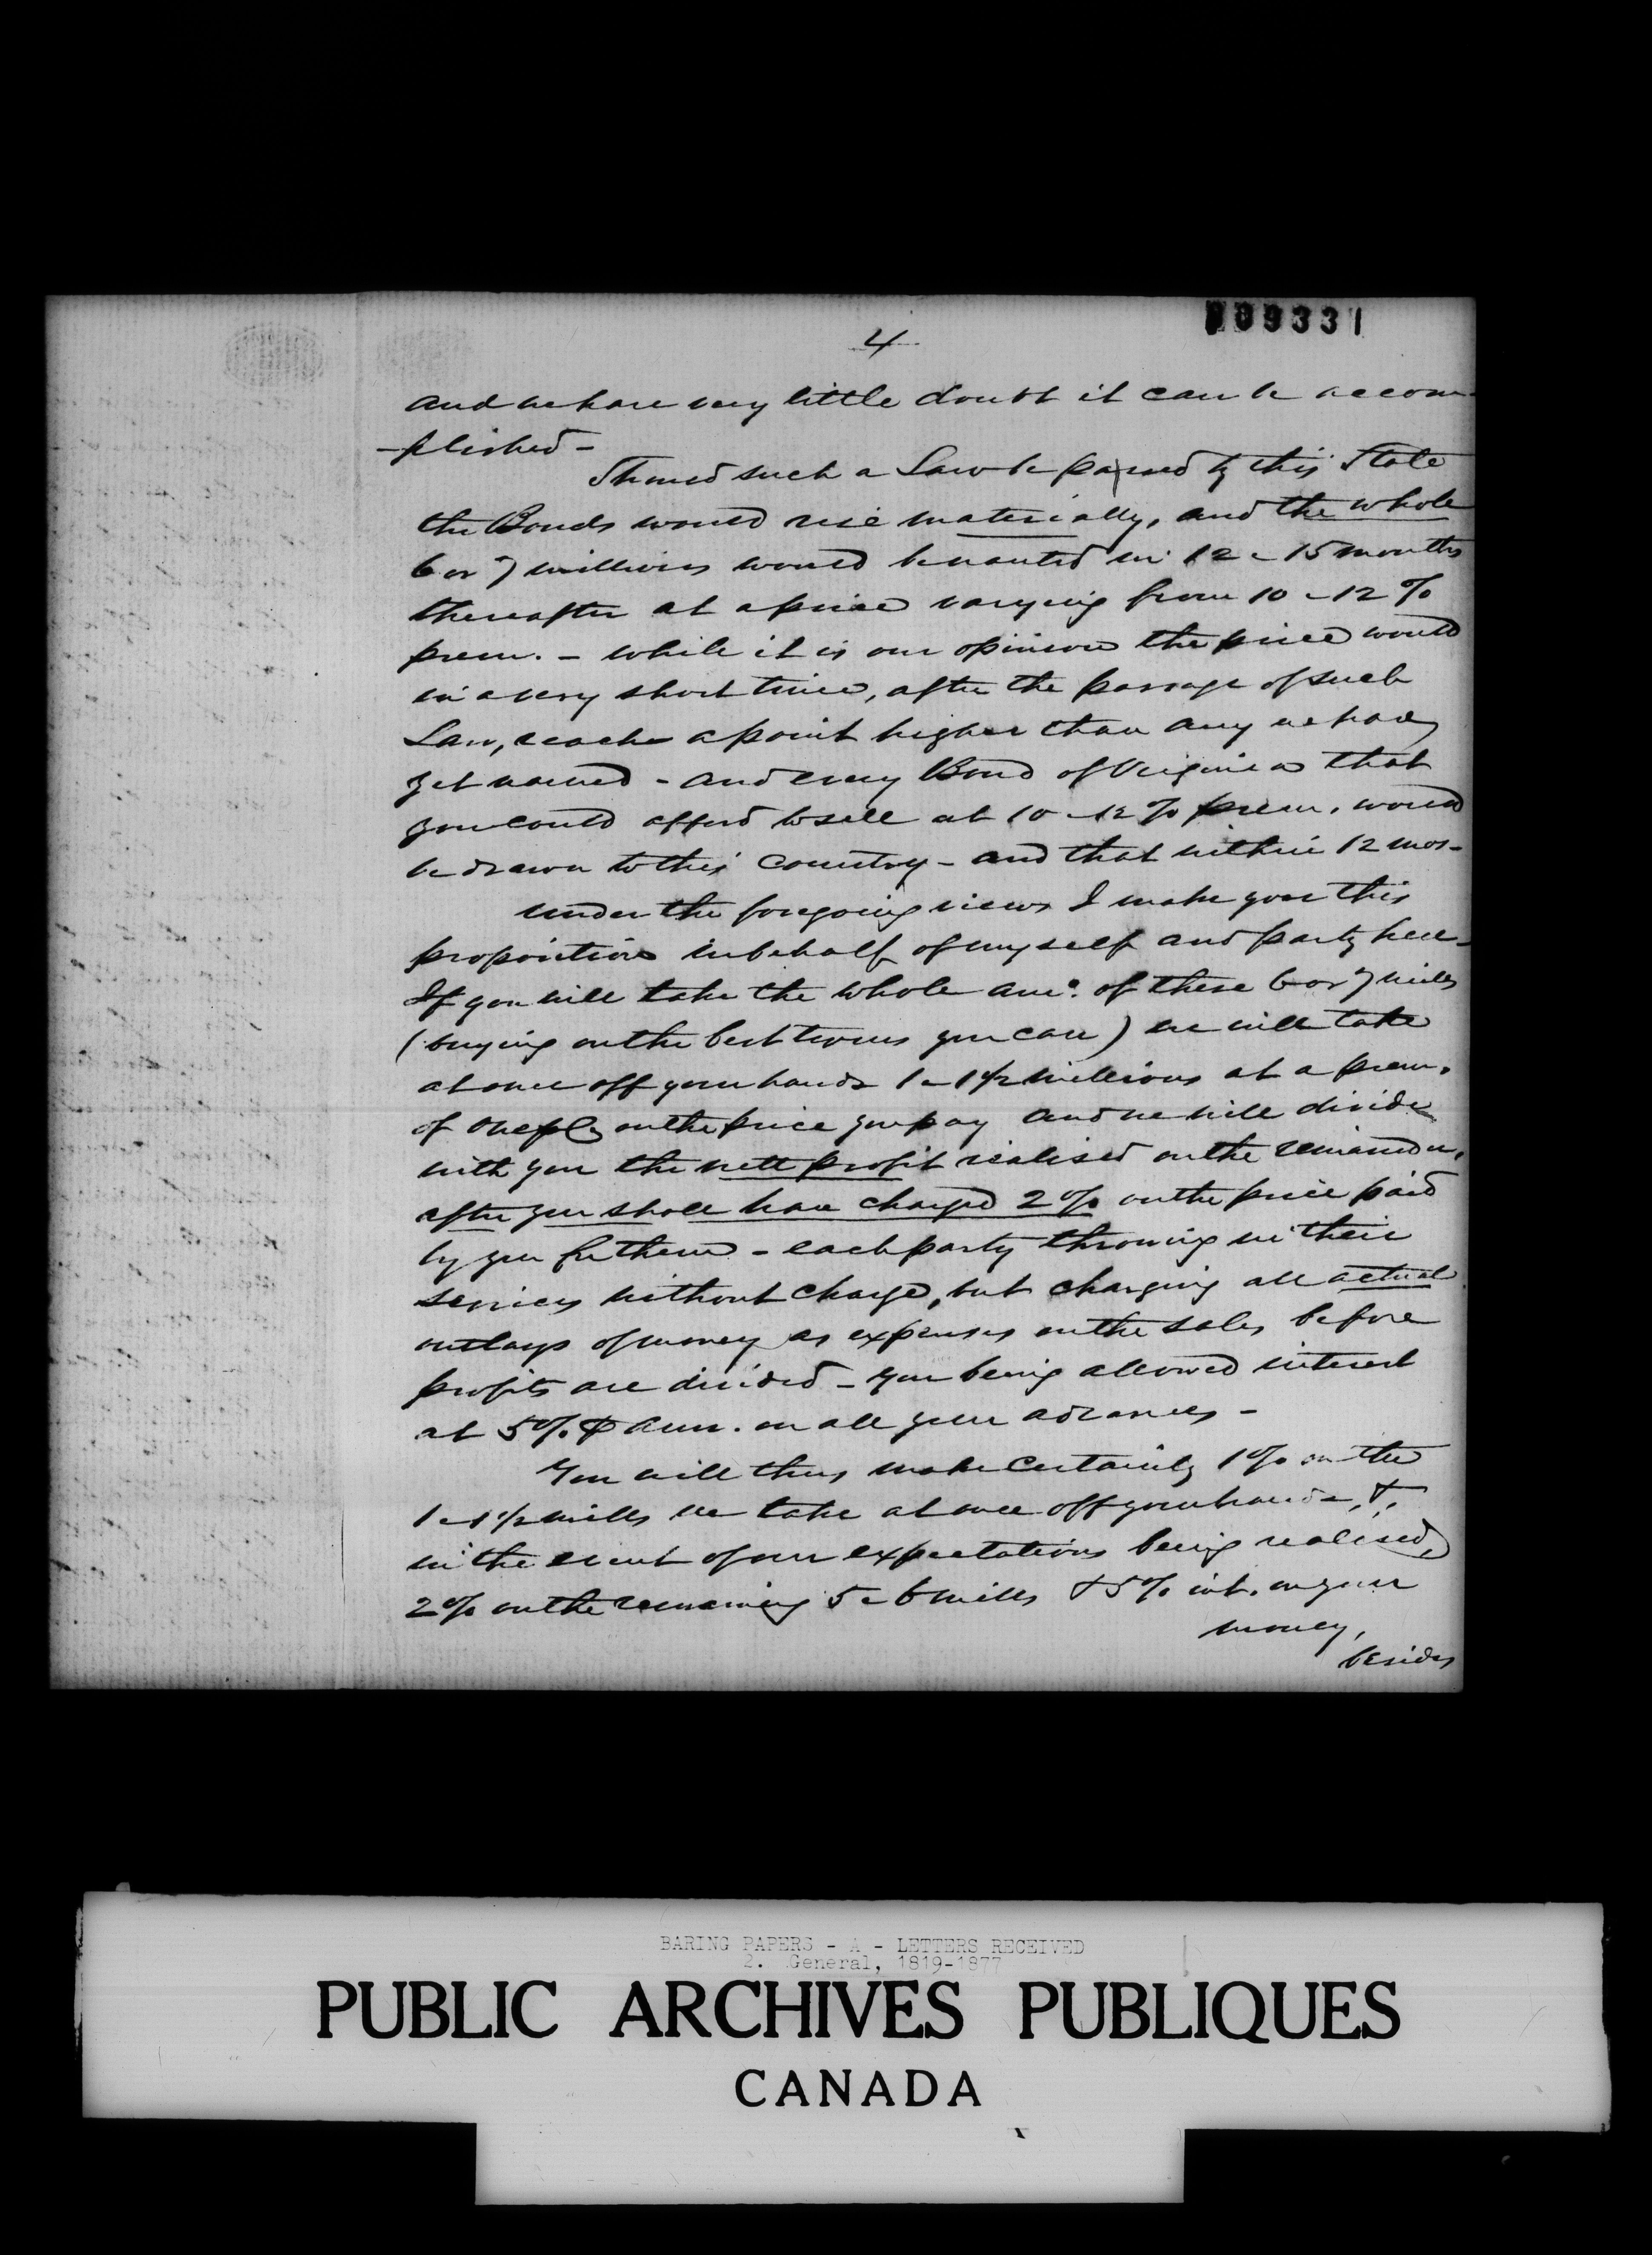 009331
4
and we have very little doubt it can be accom-
-plished -
Should such a Law be passed by this State
the Bonds would rise materially, and the whole
6 or 7 millions would be wanted in 12 a 15 months
thereafter at a price varying from 10 a 12 %
prem. - while it is our opinion the price would
in a very short time, after the passage of such
Law, reach a point higher than any we have
yet named - and every Bond of Virginia that
you could afford to sell at 10 a 12 % prem. would
be drawn to this country - and that within 12 mos -
Under the foregoing views I make you this
proposition in behalf of myself and party here -
If you will take the whole amo. of these 6 or 7 mills
(buying on the best terms you can) we will take
at once off your hands 1 a 1 1/2 millions at a prem.
of one p Ct on the price you pay and we will divide
with you the nett profit realised on the remainder,
after you shall have charged 2 % on the price paid
by you for them - each party throwing in their
services without charge, but charging all actual
outlays of money as expenses on the sales before
profits are divided - you being allowed interest
at 5 % ⅌ ann. on all your advances -
You will thus make certainly 1 % on the
1 a 1 1/2 mills we take at once off your hands, &,
in the event of our expectations being realised,
2 % on the remaining 5 a 6 mills & 5 % int. on your
money,
besides
BARING PAPERS - A - LETTERS RECEIVED
2. General, 1819-1877
PUBLIC ARCHIVES PUBLIQUES
CANADA